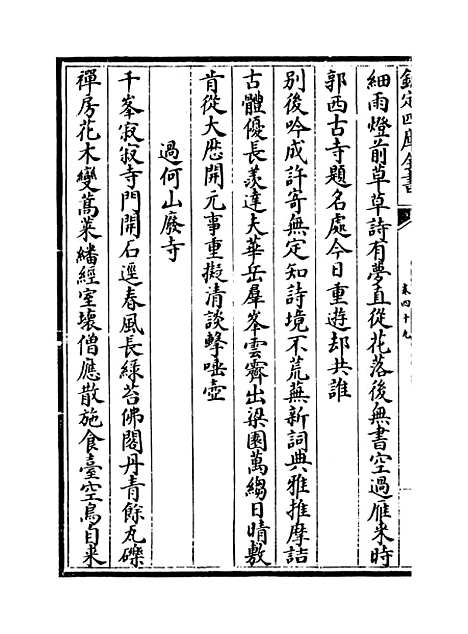 欽定四庫全書
卷四十九
細雨燈前草草詩有夢直從花落後無書空過雁来時
郭西古寺題名處今日重遊却共誰
别後吟成許寄無定知詩境不荒蕪新詞典雅推摩詰
古體優長羡達夫華岳羣峯雲霽出梁園萬縐日晴敷
肯從大厯開元事重擬清談擊唾壺
過何山廢寺
千峯寂寂寺門開石逕春風長緑苔佛閣丹青餘瓦礫
禪房花木變蒿萊繙經室壊僧應散施食臺空鳥自来